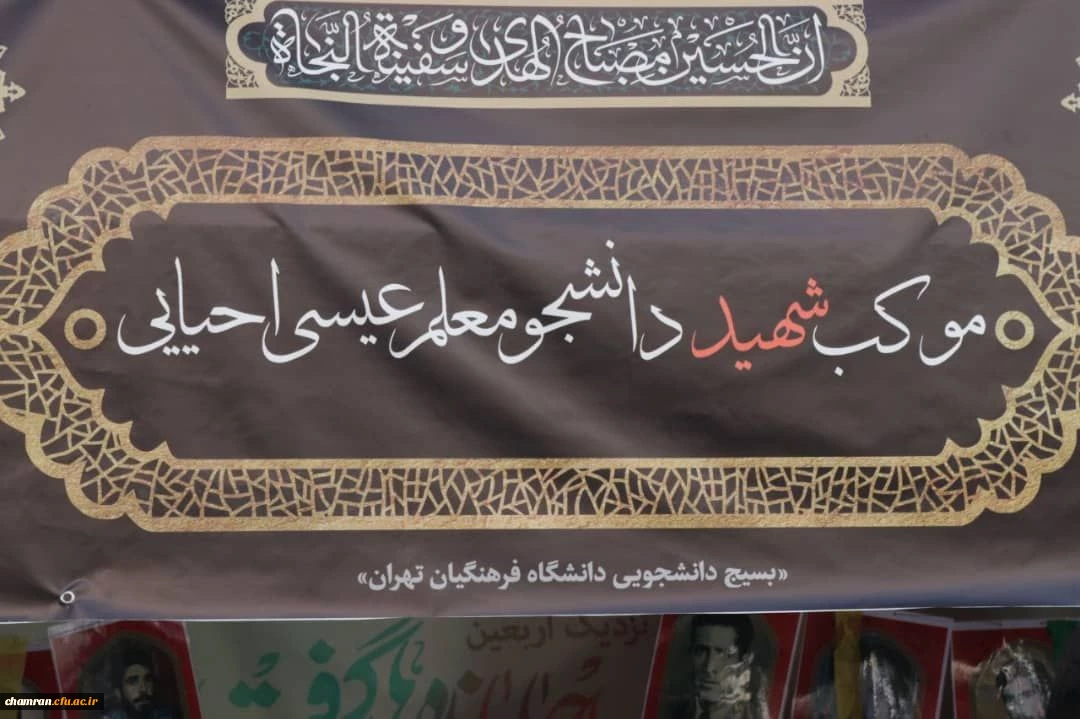 ان الحسین مصباح الهدی و سفینة النجاة
موکب شهید دانشجو معلم عیسی احیایی
«بسیج دانشجویی دانشگاه فرهنگیان تهران»
نزدیک اربعین
chamran.cfu.ac.ir